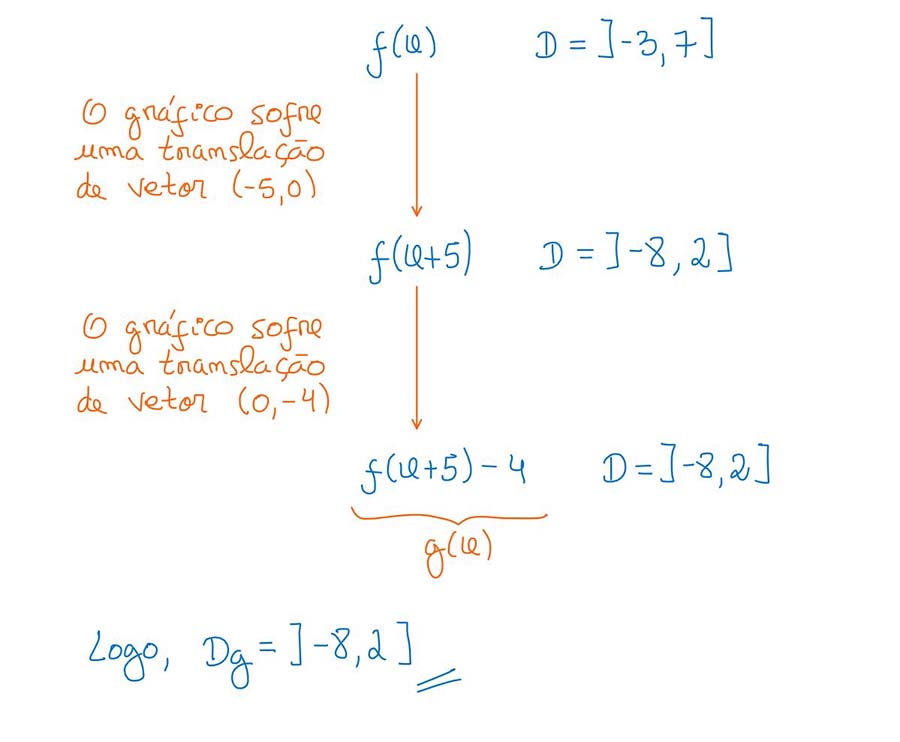 f(x) D = ]-3, 7]
O gráfico sofre
uma translação
de vetor (-5,0)
f(x+5) D = ]-8, 2]
O gráfico sofre
uma translação
de vetor (0,-4)
f(x+5) - 4 D = ]-8, 2]
g(x)
Logo, Dg = ]-8, 2]